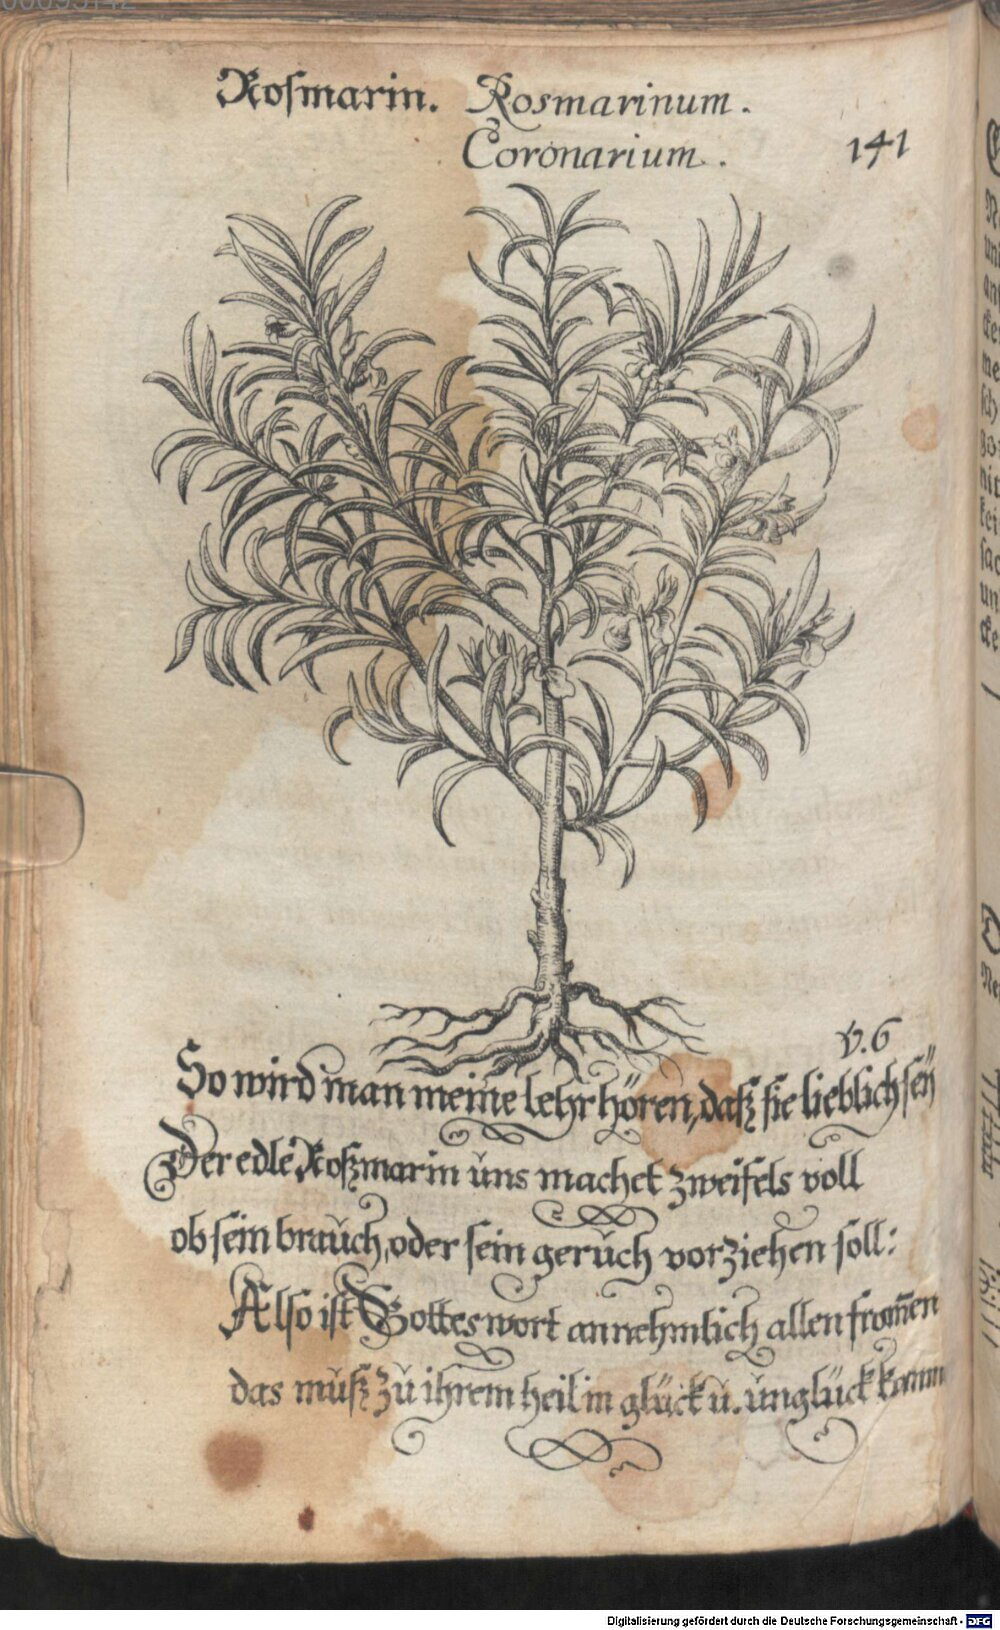 Rosmarin. Rosmarinum.
Coronarium.
141
v. 6
So wird man meine lehr hören, daß sie lieblich seÿ
Der edle Roßmarin ŭns machet zweifels voll
ob sein braŭch, oder sein gerŭch vorziehen soll:
Also ist Gottes wort annehmlich allen from̅en
das mŭß zŭ ihrem heil in glück ŭ. ŭnglück
Digitalisierung gefördert durch die Deutsche Forschungsgemeinschaft - DFG